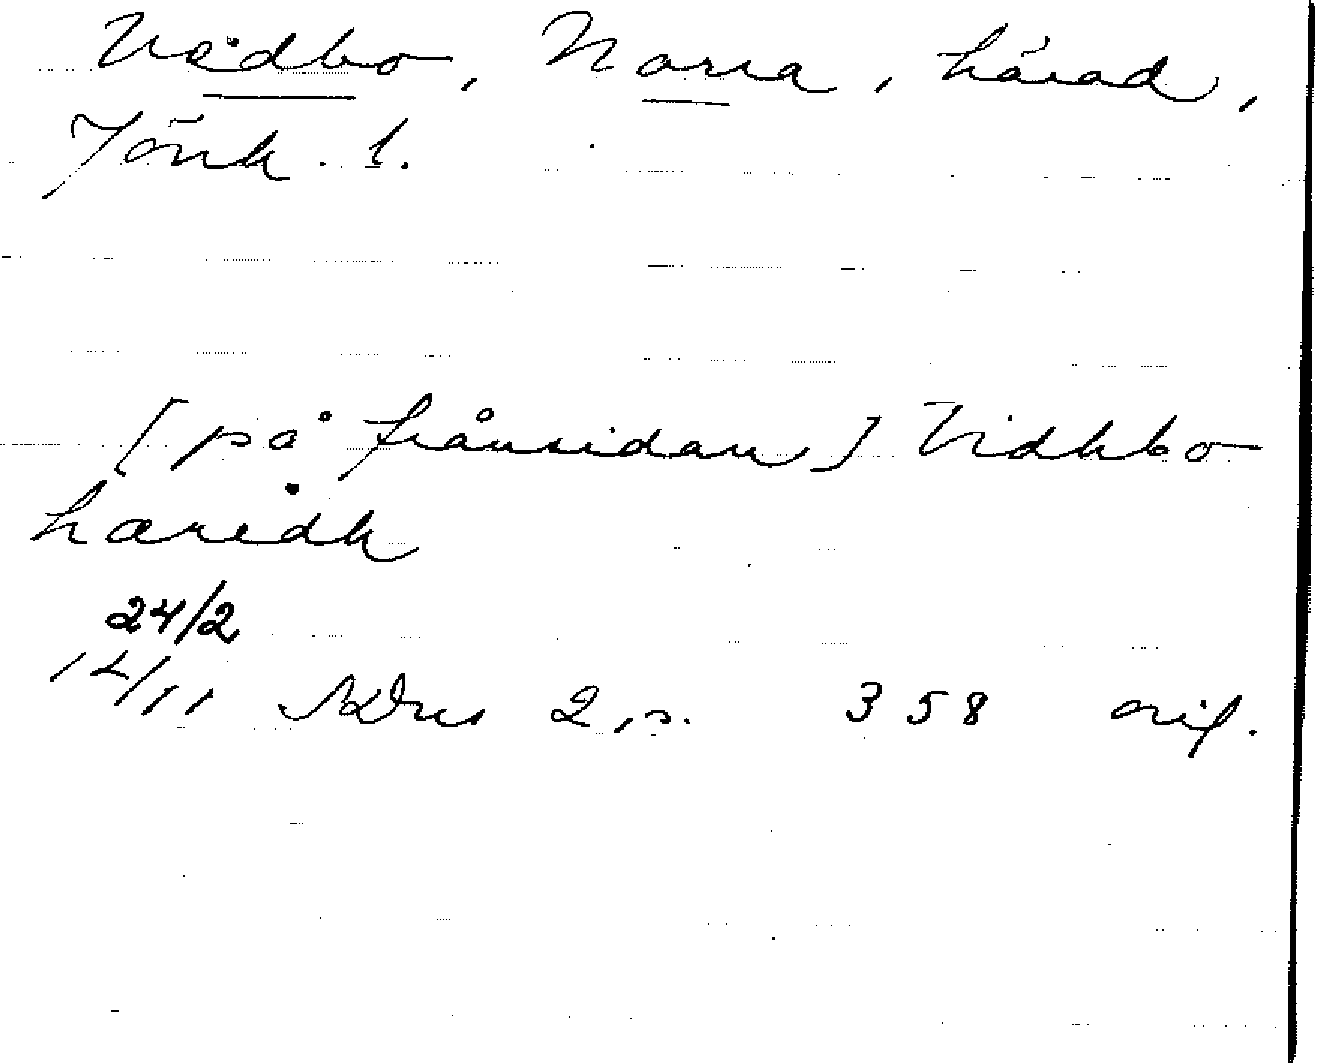 Vedbo, Norra, härad,
Jönk. l.
[på frånsidan] Vidhbo
hæredh
24/2
14/11 SDns 2, s. 358 orig.